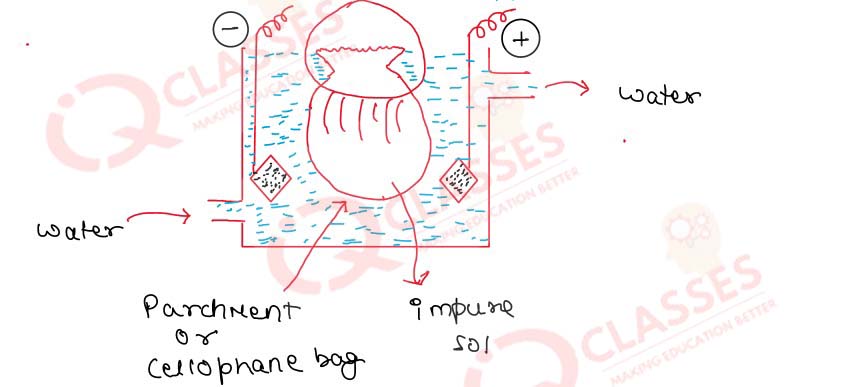 −
+
water
water
Parchment
or
Cellophane bag
impure
sol
iQ CLASSES
MAKING EDUCATION BETTER
iQ CLASSES
MAKING EDUCATION BETTER
iQ CLASSES
MAKING EDUCATION BETTER